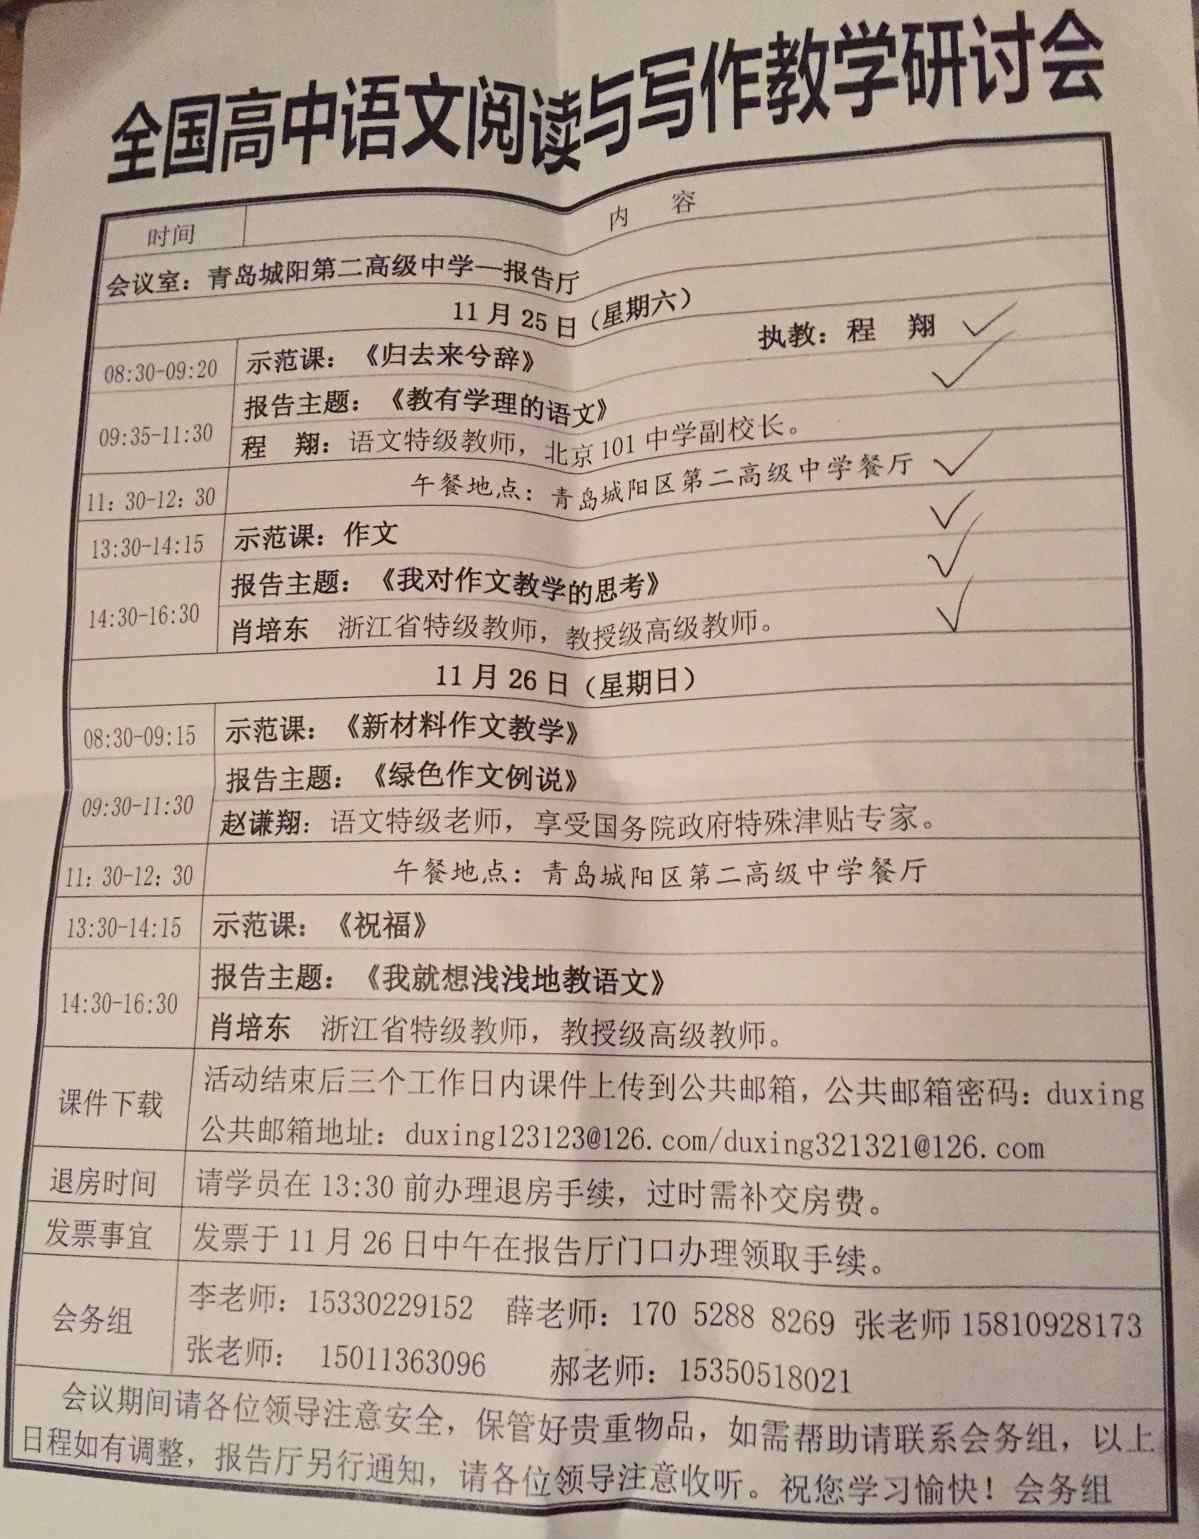 全国高中语文阅读与写作教学研讨会
时间 内 容
会议室：青岛城阳第二高级中学—报告厅
11 月 25 日（星期六）
08:30-09:20 示范课：《归去来兮辞》 执教：程 翔
09:35-11:30 报告主题：《教有学理的语文》
程 翔：语文特级教师，北京 101 中学副校长。
11：30-12：30 午餐地点：青岛城阳区第二高级中学餐厅
13:30-14:15 示范课：作文
14:30-16:30 报告主题：《我对作文教学的思考》
肖培东 浙江省特级教师，教授级高级教师。
11 月 26 日（星期日）
08:30-09:15 示范课：《新材料作文教学》
09:30-11:30 报告主题：《绿色作文例说》
赵谦翔：语文特级老师，享受国务院政府特殊津贴专家。
11：30-12：30 午餐地点：青岛城阳区第二高级中学餐厅
13:30-14:15 示范课：《祝福》
14:30-16:30 报告主题：《我就想浅浅地教语文》
肖培东 浙江省特级教师，教授级高级教师。
课件下载 活动结束后三个工作日内课件上传到公共邮箱，公共邮箱密码：duxing
公共邮箱地址：duxing123123@126.com/duxing321321@126.com
退房时间 请学员在 13:30 前办理退房手续，过时需补交房费。
发票事宜 发票于 11 月 26 日中午在报告厅门口办理领取手续。
会务组 李老师：15330229152 薛老师：170 5288 8269 张老师 15810928173
张老师： 15011363096 郝老师：15350518021
会议期间请各位领导注意安全，保管好贵重物品，如需帮助请联系会务组，以上
日程如有调整，报告厅另行通知，请各位领导注意收听。祝您学习愉快！会务组